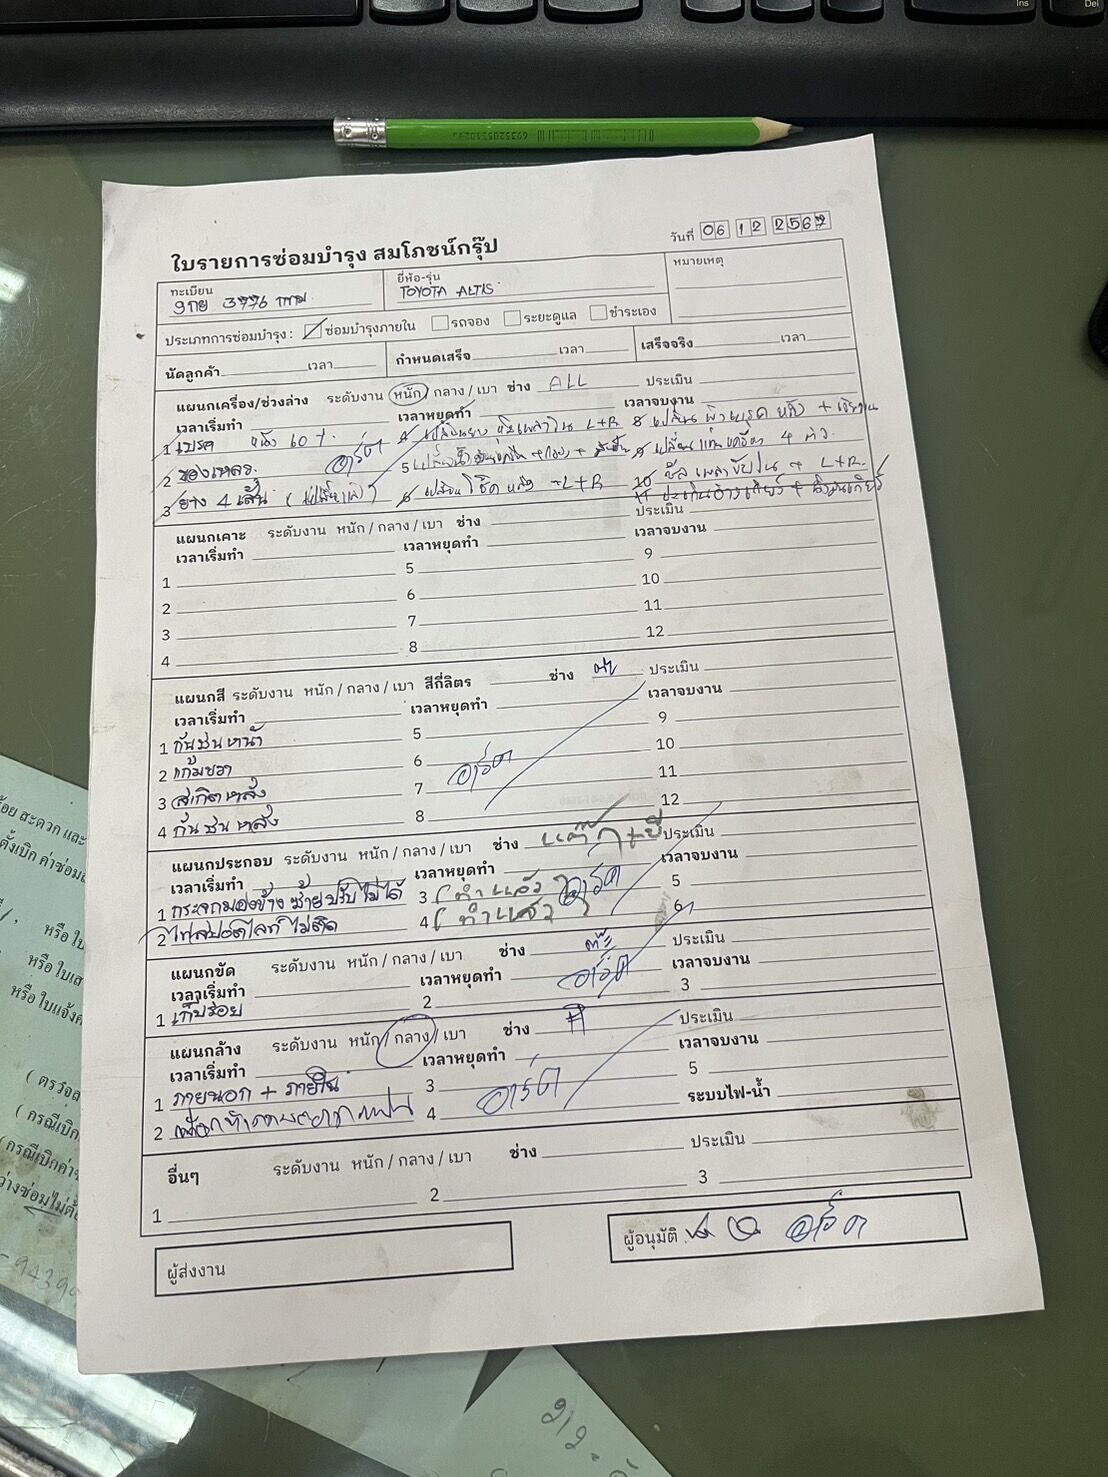 Ins
Del
69352052310293
วันที่ 06 12 2567
ใบรายการซ่อมบำรุง สมโภชน์กรุ๊ป
ทะเบียน
9กย 3776 กทม.
ยี่ห้อ-รุ่น
TOYOTA ALTIS
หมายเหตุ
ประเภทการซ่อมบำรุง : ซ่อมบำรุงภายใน รถจอง ระยะดูแล ชำระเอง
นัดลูกค้า เวลา กำหนดเสร็จ เวลา เสร็จจริง เวลา
แผนกเครื่อง/ช่วงล่าง ระดับงาน หนัก / กลาง / เบา ช่าง ALL ประเมิน
เวลาเริ่มทำ เวลาหยุดทำ เวลาจบงาน
1 เบรค หลัง 60 % 4 L+R 8 เปลี่ยน ผ้าเบรค หลัง +
2 ของเหลว. อาร์ต 5 9 4 ตัว.
3 ยาง 4 เส้น 6 เปลี่ยน โช๊ค หลัง - L+R 10 L+R.
11
แผนกเคาะ ระดับงาน หนัก / กลาง / เบา ช่าง ประเมิน
เวลาเริ่มทำ เวลาหยุดทำ เวลาจบงาน
1 5 9
2 6 10
3 7 11
4 8 12
แผนกสี ระดับงาน หนัก / กลาง / เบา สีกี่ลิตร ช่าง ประเมิน
เวลาเริ่มทำ เวลาหยุดทำ เวลาจบงาน
1 กันชนหน้า 5 9
2 แก้มขวา 6 อาร์ต 10
3 สเกิตหลัง 7 11
4 กันชนหลัง 8 12
แผนกประกอบ ระดับงาน หนัก / กลาง / เบา ช่าง ประเมิน
เวลาเริ่มทำ เวลาหยุดทำ เวลาจบงาน
1 กระจกมองข้าง ซ้ายปรับไม่ได้ 3 (ทำแล้ว) อาร์ต 5
2 ไฟสปอตไลท์ ไม่ติด 4 (ทำแล้ว) 6
แผนกขัด ระดับงาน หนัก / กลาง / เบา ช่าง ประเมิน
เวลาเริ่มทำ เวลาหยุดทำ อาร์ต เวลาจบงาน
1 เก็บรอย 2 3
แผนกล้าง ระดับงาน หนัก / กลาง / เบา ช่าง ประเมิน
เวลาเริ่มทำ เวลาหยุดทำ เวลาจบงาน
1 ภายนอก + ภายใน 3 อาร์ต 5
2 4 ระบบไฟ-น้ำ
อื่นๆ ระดับงาน หนัก / กลาง / เบา ช่าง ประเมิน
1 2 3
ผู้ส่งงาน
ผู้อนุมัติ อาร์ต
สะดวก และ
ตั้งเบิก ค่าซ่อม
หรือ
หรือ ใบเส
หรือ ใบแจ้ง
( ตรวจส
( กรณีเบิก
(กรณีเบิกค่า
ว่างซ่อมไม่